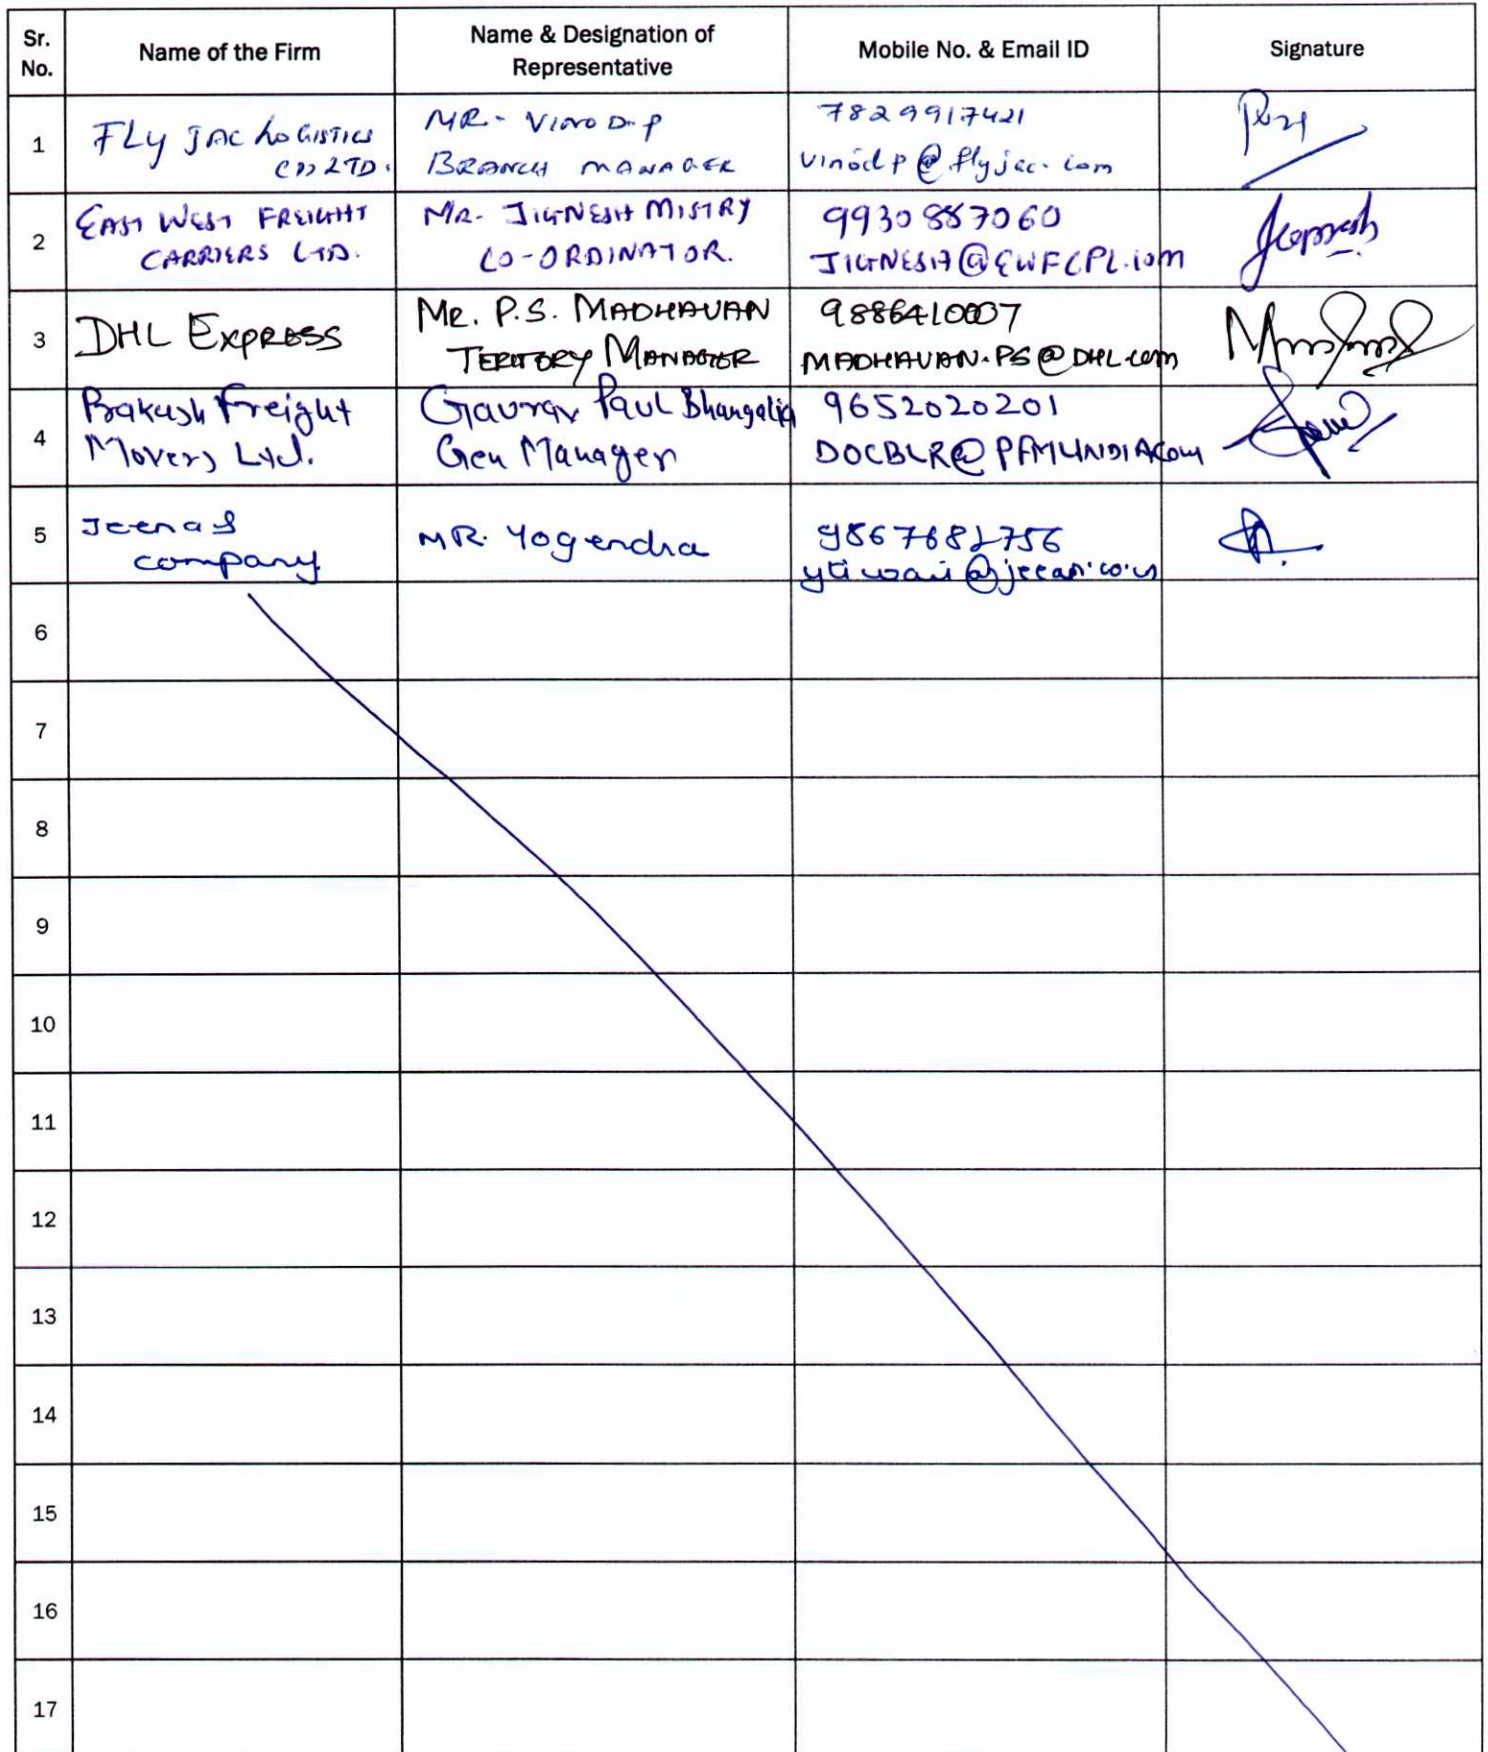 Sr. No. Name of the Firm Name & Designation of Representative Mobile No. & Email ID Signature
1
FLY JAC LOGISTICS
(P) LTD.
MR. VINOD.P
BRANCH MANAGER
7829917421
vinodp@flyjac.com
2
EAST WEST FREIGHT
CARRIERS LTD.
MR. JIGNESH MISTRY
CO-ORDINATOR.
9930887060
JIGNESH@EWFCPL.com
3
DHL EXPRESS
MR. P.S. MADHAVAN
TERITORY MANAGER
9886410007
MADHAVAN.PS@DHL.com
4
Prakash Freight
Movers Ltd.
Gaurav Paul Bhangalia
Gen Manager
9652020201
5
Jeena &
company
MR. Yogendra
6
7
8
9
10
11
12
13
14
15
16
17